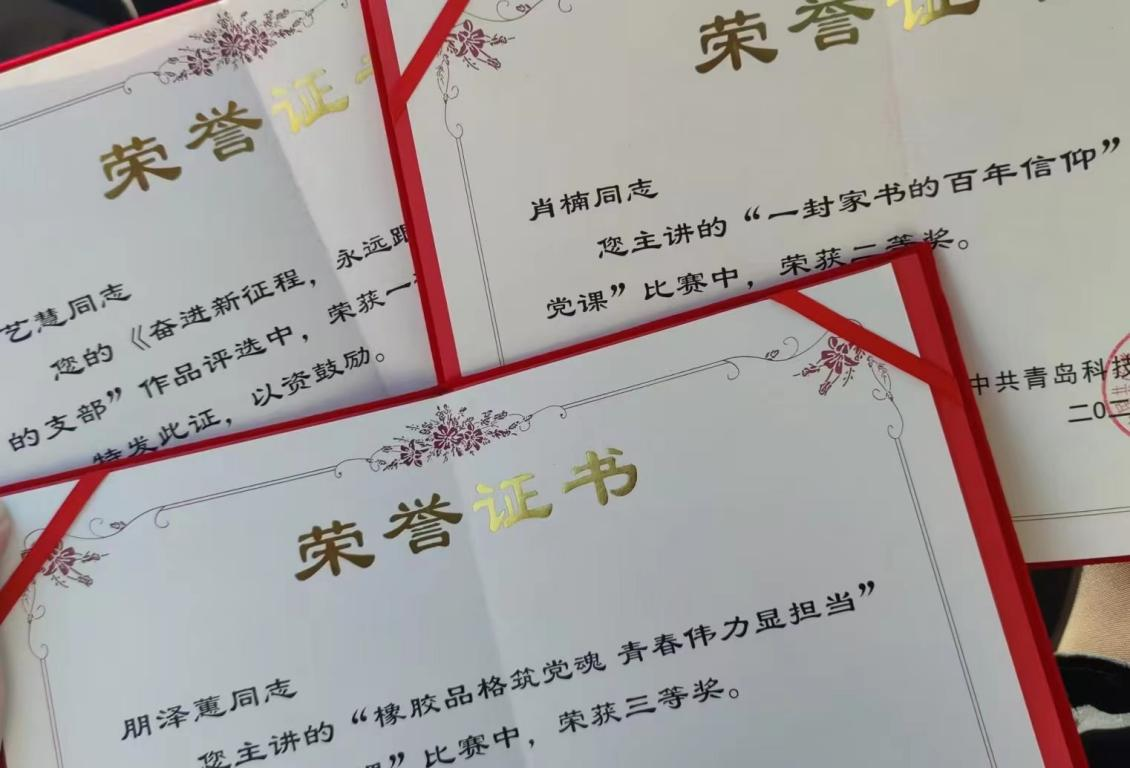 荣誉证
艺慧同志
您的《奋进新征程，永远跟
的支部”作品评选中，荣获一
特发此证，以资鼓励。
荣誉证
肖楠同志
您主讲的“一封家书的百年信仰”
党课”比赛中，荣获二等奖。
中共青岛科技
二〇二
荣誉证书
朋泽蕙同志
您主讲的“橡胶品格筑党魂 青春伟力显担当”
课”比赛中，荣获三等奖。